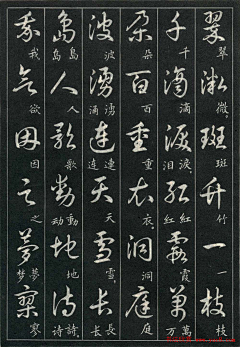 翠微斑竹一枝
翠微,斑竹一枝
千滴淚紅霞萬
千滴泪淚,红紅霞万萬
朵百重衣洞庭
朵百重衣。洞庭
波湧連天雪長
波涌湧连連天雪,长長
島人歌動地詩
岛島人歌动動地诗詩。
我欲因之夢寥
我欲因之梦夢寥